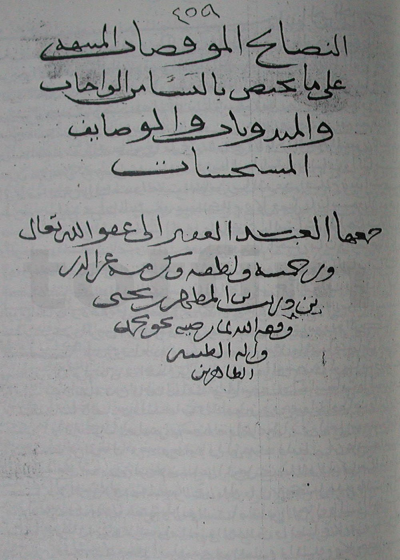 ٤٥٩
النصائح الموقصات المنبهة
على ما يختص بالنساء من الواجبات
والمندوبات والوصايف
المستحسنات
جمعها العبد الفقير الى عفو الله تعالى
ورحمته ولطفه وكرمه عز الدين
بن دريب بن المطهر بن يحيى
وفقه الله لما يرضيه بحق محمد
واله الطيبين
الطاهرين